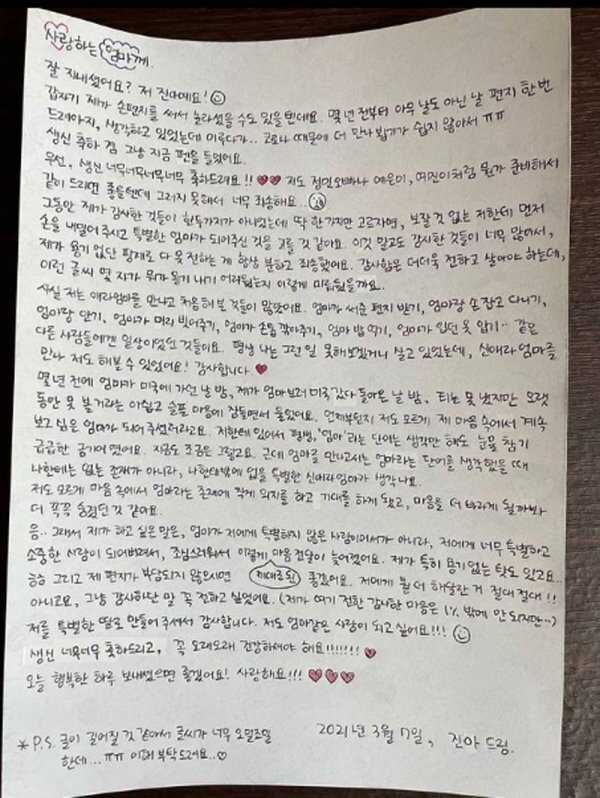 사랑하는 엄마께.
잘 지내셨어요? 저 진아예요!
갑자기 제가 손편지를 써서 놀라셨을 수도 있을텐데요. 몇 년 전부터 아무 날도 아닌 날 편지 한 번
드려야지, 생각하고 있었는데 미루다가.. 코로나 때문에 더 만나 뵙기가 쉽지 않아서 ㅠㅠ
생신 축하 겸 그냥 지금 펜을 들었어요.
우선, 생신 너무너무너무너무 축하드려요!! ♥♥ 저도 정민오빠나 예은이, 예진이처럼 뭔가 준비해서
같이 드리면 좋을텐데 그러지 못해서 너무 죄송해요..
그동안 제가 감사한 것들이 한두가지가 아니었는데 딱 한가지만 고르자면, 보잘 것 없는 저한테 먼저
손을 내밀어 주시고 특별한 엄마가 되어주신 것을 고를 것 같아요. 이것 말고도 감사한 것들이 너무 많아서,
제가 용기 없단 핑계로 다 못 전하는 게 항상 분하고 죄송했어요. 감사함은 더더욱 전하고 살아야 하는데,
이런 글씨 몇 자가 뭐가 용기 내기 어려웠는지 이렇게 미뤄뒀을까요.
사실 저는 애라엄마를 만나고 처음 해 본 것들이 많았어요. 엄마가 써준 편지 받기, 엄마랑 손 잡고 다니기,
엄마랑 안기, 엄마가 머리 빗어주기, 엄마가 손톱 깎아주기, 엄마 밥 먹기, 엄마가 입던 옷 입기.. 같은
다른 사람들에겐 일상이었던 것들이요. 평생 나는 그런 일 못해보겠거니 살고 있었는데, 신애라 엄마를
만나 저도 해볼 수 있었어요! 감사합니다 ♥
몇 년 전에 엄마가 미국에 가신 날 밤, 제가 엄마보러 미국 갔다 돌아온 날 밤, 티는 못 냈지만 오랫
동안 못 볼 거라는 아쉽고 슬픈 마음에 잠들면서 울었어요. 언제부턴지 저도 모르게 제 마음 속에서 계속
보고 싶은 엄마가 되어 주셨더라고요. 저한테 있어서 평생, '엄마'라는 단어는 생각만 해도 눈물 참기
급급한 금기어였어요. 지금도 조금은 그렇고요. 근데 엄마를 만나고서는 엄마라는 단어를 생각했을 때
나한테는 없는 존재가 아니라, 나한테밖에 없을 특별한 신애라엄마가 생각나요.
저도 모르게 마음 속에서 엄마라는 존재에 작게 의지를 하고 기대를 하게 됐고, 마음을 더 바라게 될까봐
더 꼭꼭 숨겼던 것 같아요.
음.. 그래서 제가 하고 싶은 말은, 엄마가 저에게 특별하지 않은 사람이어서가 아니라, 저에게 너무 특별하고
소중한 사람이 되어버려서, 조심스러워서 이렇게 마음 전달이 늦어졌어요. 제가 특히 용기 없는 탓도 있고요..
하하 그리고 제 편지가 부담되지 않으시면 좋겠어요. 저에게 뭘 더 해달란 거 절대 절대!!
아니고요, 그냥 감사하단 말 꼭 전하고 싶었어요. (제가 여기 전한 감사한 마음은 1% 밖에 안 되지만..)
저를 특별한 딸로 만들어 주셔서 감사합니다. 저도 엄마같은 사람이 되고 싶어요!!!
생신 너무너무 축하드리고, 꼭 오래오래 건강하셔야 해요!!!!!!! ♥
오늘 행복한 하루 보내셨으면 좋겠어요! 사랑해요!!! ♥♥♥
2021년 3월 7일, 진아 드림.
* P.S. 글이 길어질 것 같아서 글씨가 너무 오밀조밀
한데...ㅠㅠ 이해 부탁드려요..♡